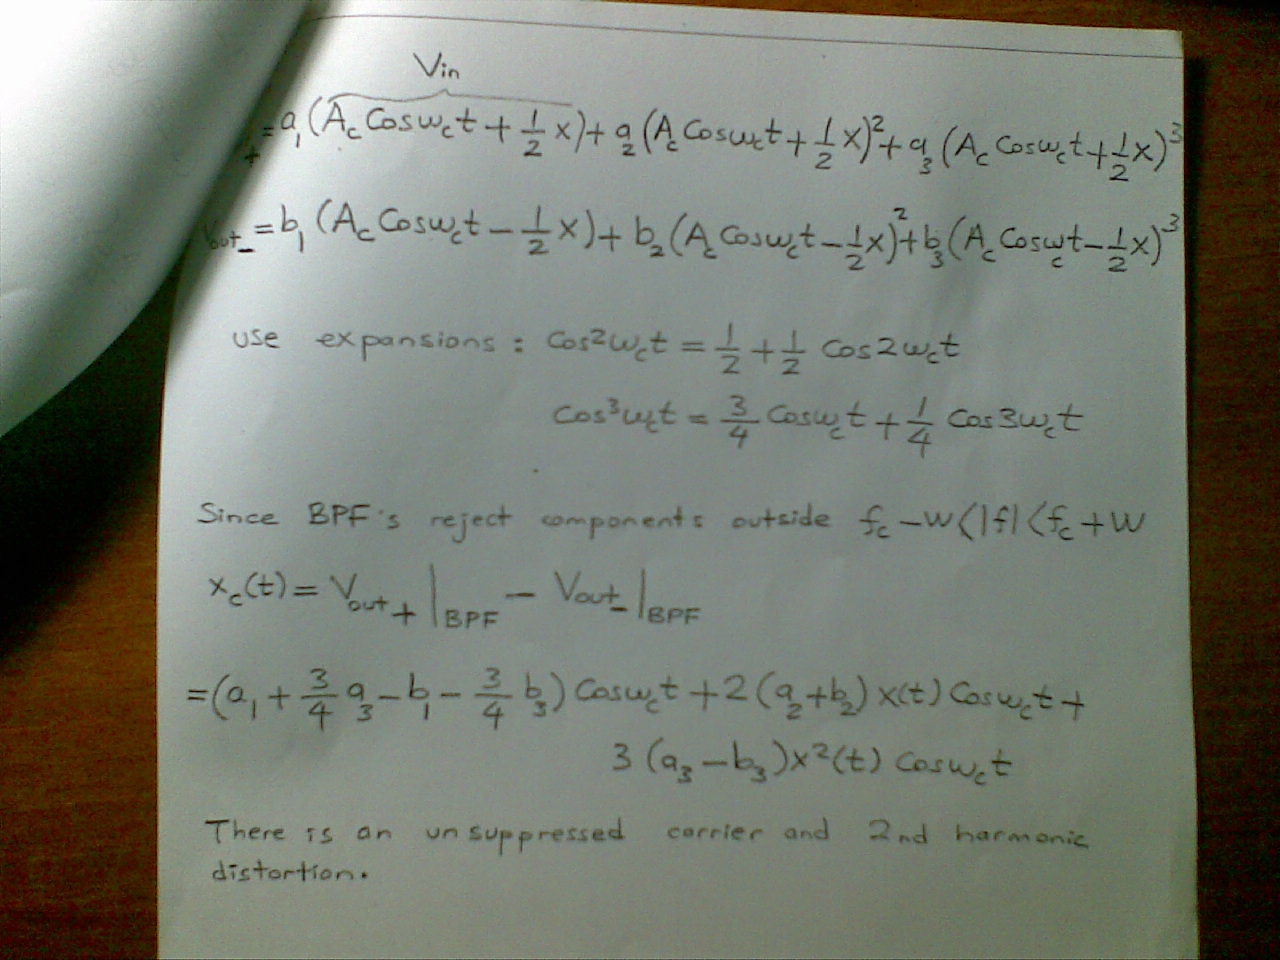 Vin
+ = a₁(A_c Cosω_ct + 1/2 x) + a₂(A_c Cosω_ct + 1/2 x)² + a₃(A_c Cosω_ct + 1/2 x)³
out- = b₁(A_c Cosω_ct - 1/2 x) + b₂(A_c Cosω_ct - 1/2 x)² + b₃(A_c Cosω_ct - 1/2 x)³
use expansions : Cos²ω_ct = 1/2 + 1/2 Cos2ω_ct
Cos³ω_ct = 3/4 Cosω_ct + 1/4 Cos3ω_ct
Since BPF's reject components outside f_c - W < |f| < f_c + W
x_c(t) = V_out+ |_BPF - V_out- |_BPF
= (a₁ + 3/4 a₃ - b₁ - 3/4 b₃) Cosω_ct + 2(a₂ + b₂) x(t) Cosω_ct +
3 (a₃ - b₃) x²(t) Cosω_ct
There is an unsuppressed carrier and 2nd harmonic
distortion.